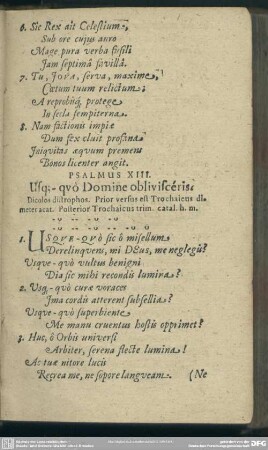 6. Sic Rex ait Celestium,
Sub ore cujus auro
Mage pura verba fusili
Jam septimâ favillâ.
7. Tu, Jova, serva, maxime,
Cœtum tuum relictum;
A reprobisq; protege
In secla sempiterna.
8. Nam factionis impiæ
Dum fæx cluit profana
Iniquitas æquum premens
Bonos licenter angit.
PSALMUS XIII.
Usq;-quò Domine oblivisceris.
Dicolos distrophos. Prior versus est Trochaicus di-
meter acat. Posterior Trochaicus trim. catal. h. m.
1. USQVE-QVO sic ô misellum
Derelinquens, mi DEus, me neglegis?
Vsque-quò vultus benigni
Dia sic mihi recondis lumina?
2. Vsq;-quò curæ voraces
Ima cordis atterent subsellia?
Vsque-quò superbiente
Me manu cruentus hostis opprimet?
3. Huc, ô Orbis universi
Arbiter, serena flecte lumina!
Ac tuæ nitore lucis
Recrea me, ne sopore langveam.
(Ne